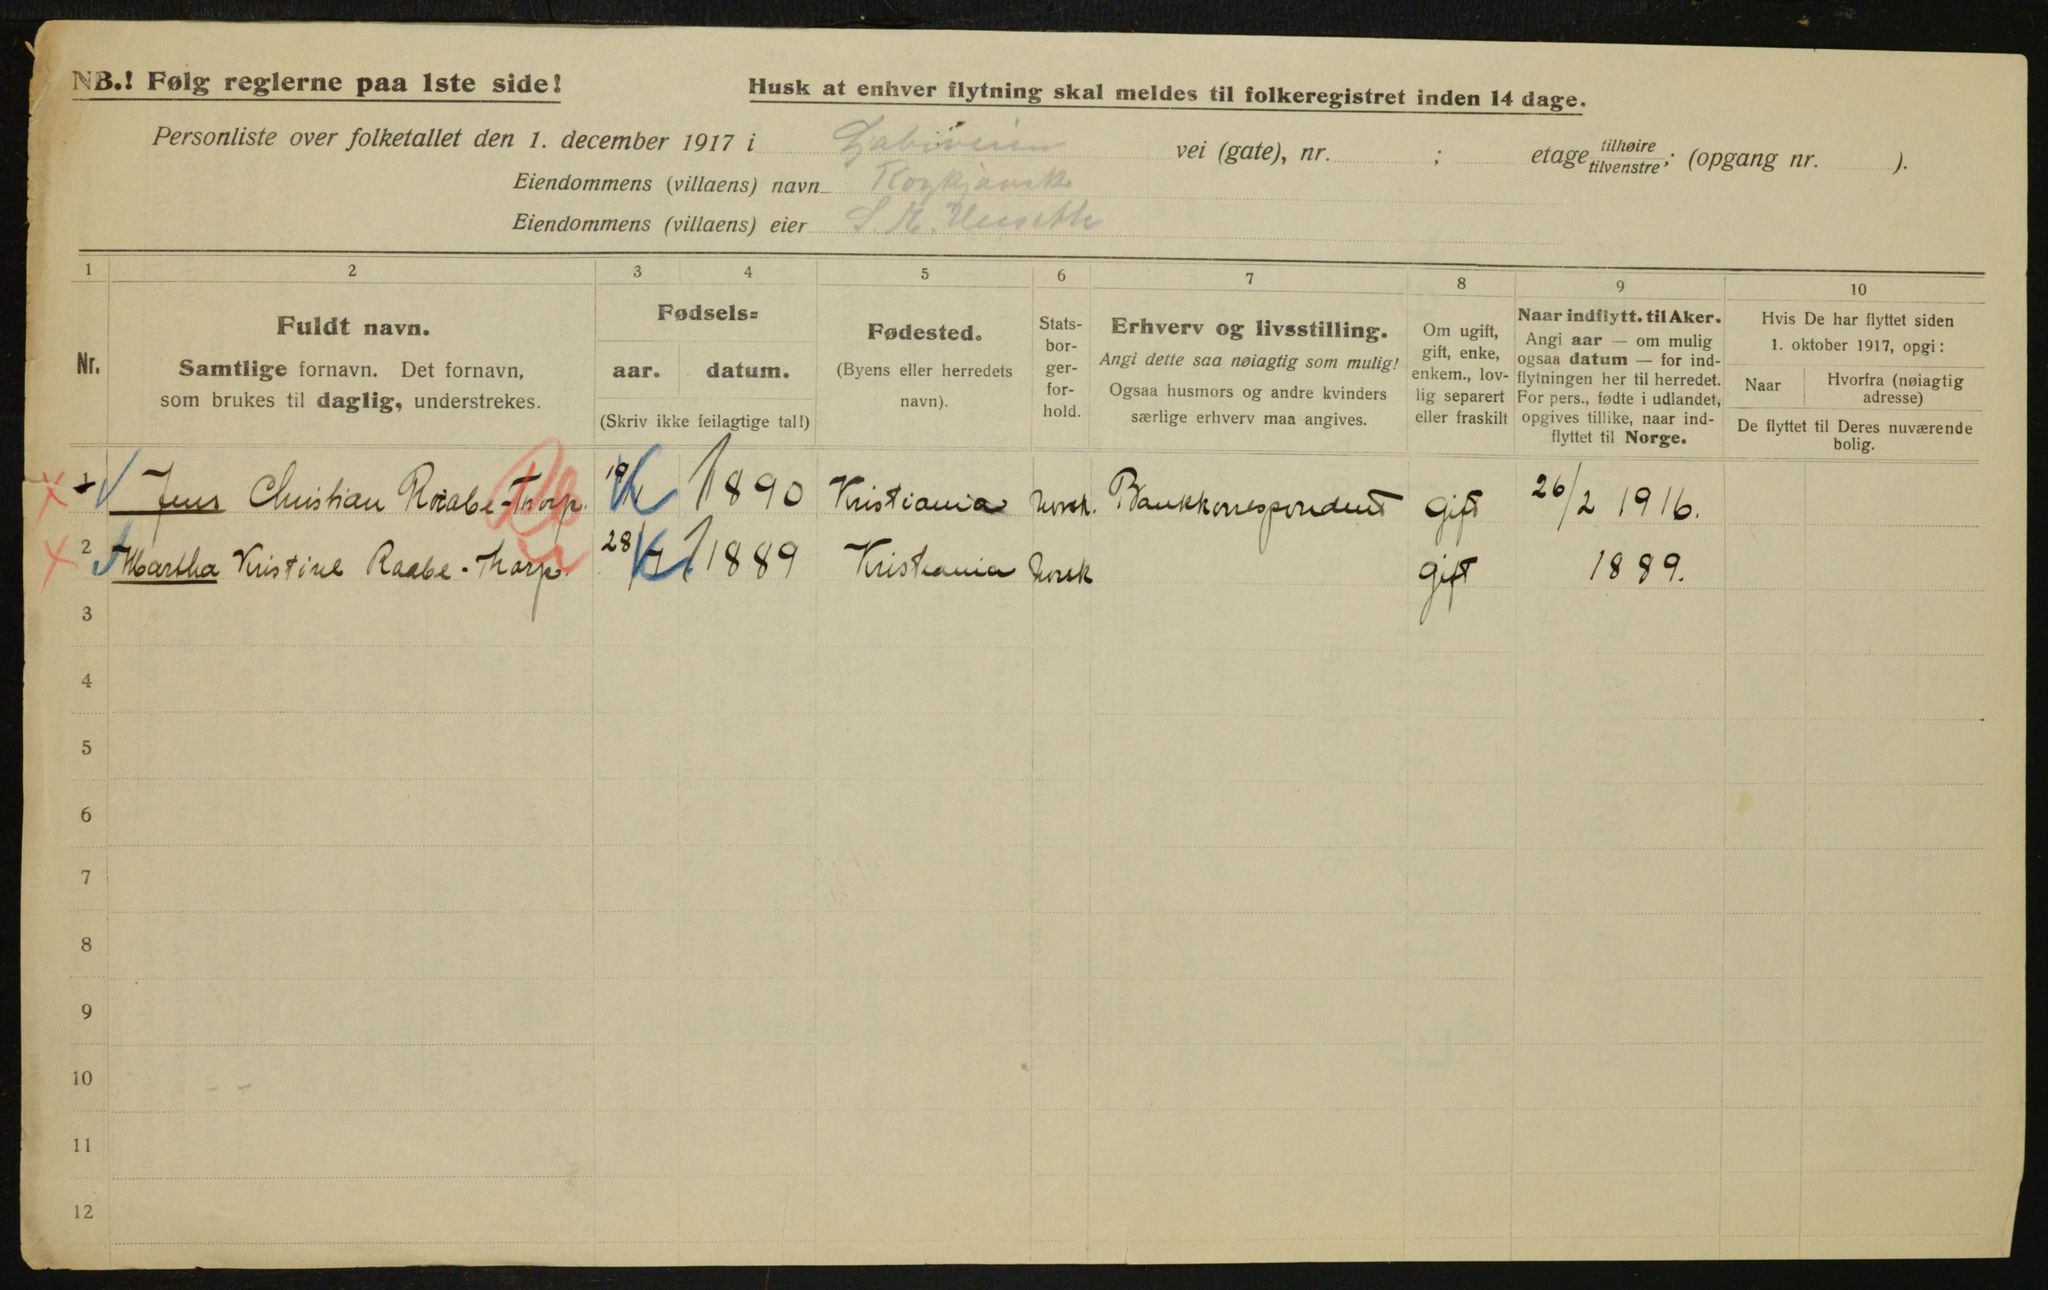 NB.! Følg reglerne paa 1ste side!
Husk at enhver flytning skal meldes til folkeregistret inden 14 dage.
Personliste over folketallet den 1. december 1917 i Ljabruveien vei (gate), nr. ; etage tilhøire tilvenstre; (opgang nr. ).
Eiendommens (villaens) navn Roykjavik
Eiendommens (villaens) eier S. M.
1 2 3 4 5 6 7 8 9 10
Nr.
Fuldt navn.
Samtlige fornavn. Det fornavn,
som brukes til daglig, understrekes.
Fødsels=
aar. datum.
(Skriv ikke feilagtige tal!)
Fødested.
(Byens eller herredets
navn).
Stats-
bor-
ger-
for-
hold.
Erhverv og livsstilling.
Angi dette saa nøiagtig som mulig!
Ogsaa husmors og andre kvinders
særlige erhverv maa angives.
Om ugift,
gift, enke,
enkem., lov-
lig separert
eller fraskilt
Naar indflytt. til Aker.
Angi aar — om mulig
ogsaa datum — for ind-
flytningen her til herredet.
For pers., fødte i udlandet,
opgives tillike, naar ind-
flyttet til Norge.
Hvis De har flyttet siden
1. oktober 1917, opgi:
Naar
Hvorfra (nøiagtig
adresse)
De flyttet til Deres nuværende
bolig.
1 Jens Christian Raabe-Thorp. 1890 Kristiania norsk. Bankkorrespondent gift 26/2 1916.
2 Martha Kristine Raabe-Thorp. 28/ 1889 Kristiania norsk gift 1889.
3
4
5
6
7
8
9
10
11
12